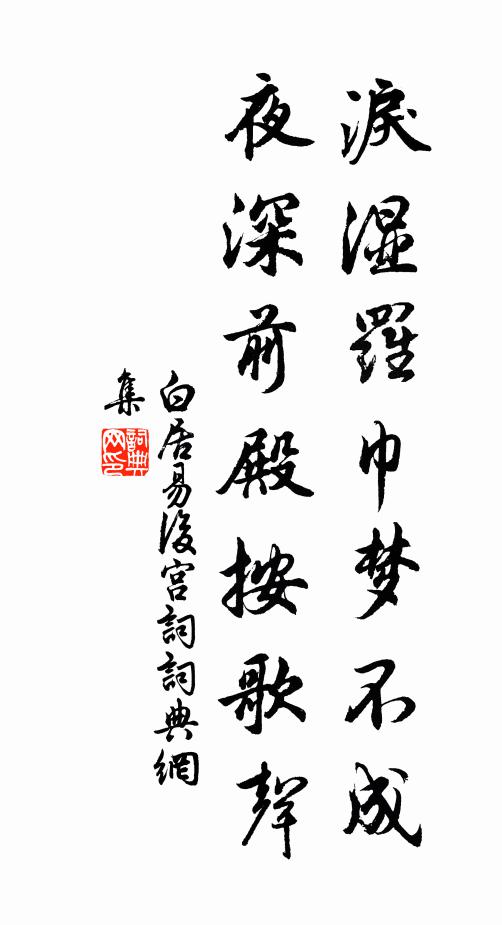 淚濕羅巾梦不成
夜深前殿按歌聲
白居易後宮詞詞典網
集
詞典网印